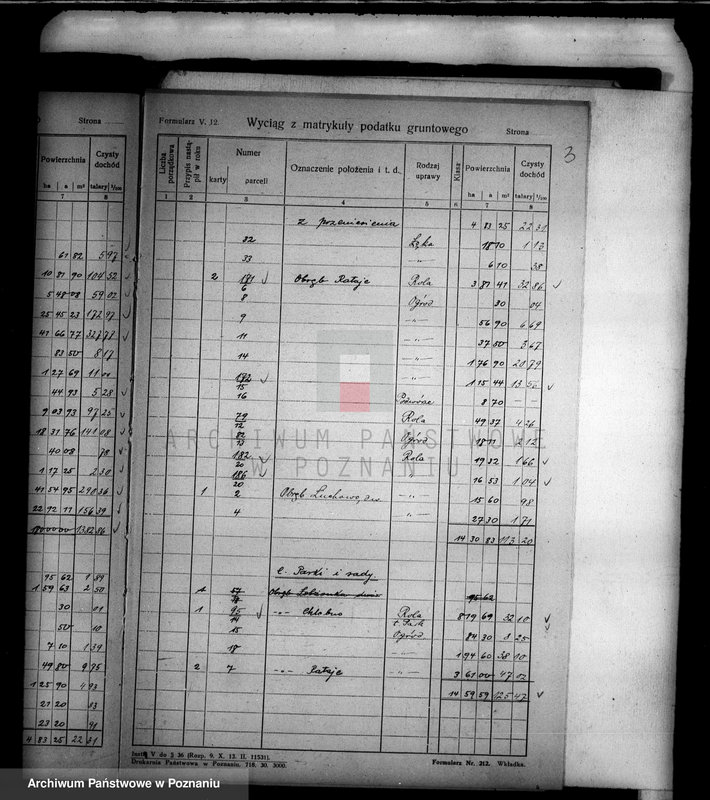 Strona
Powierzchnia Czysty dochód
ha a m² talary 1/100
7 8
61 82 5 97
10 81 90 104 52
5 48 08 59 02
25 45 23 172 97
41 66 77 327 77
83 50 8 17
1 27 69 11 01
44 93 5 28
9 03 93 97 25
18 31 76 141 08
40 08 78
1 17 25 2 30
41 54 95 290 36
22 12 11 156 39
95 62 1 89
1 59 63 2 50
30 01
50 10
7 10 1 39
49 80 9 75
1 25 90 4 93
21 20 83
23 20 91
4 83 25 22 31
3
Formularz V. 12. Wyciąg z matrykuły podatku gruntowego Strona
Liczba porządkowa Przypis nastąpił w roku Numer karty parceli Oznaczenie położenia i t. d. Rodzaj uprawy Klasa Powierzchnia ha a m² Czysty dochód talary 1/100
1 2 3 4 5 6 7 8
Z przeniesienia 4 83 25 22 31
32 Łąka 18 70 1 13
33 -"- 6 10 38
2 181/6 Obręb Rataje Rola 3 87 41 32 86
8 Ogród 30 04
9 -"- 56 90 6 69
11 -"- 37 50 3 67
14 -"- 1 76 90 20 79
172/15 -"- 1 15 44 13 56
16 Podwórze 8 70 —
79/12 Rola 49 37 4 26
82/13 Ogród 18 11 2 12
182/20 Rola 19 32 1 66
186/20 " 16 53 1 04
1 2 Obręb Luchowo, dw. -"- 15 60 98
4 -"- 27 30 1 71
14 30 83 113 20
C. Parki i sady
Obręb Łobżonka dwór 95 62
1 95/14 -"- Chlebno Rola t. Park 8 19 69 32 10
15 Ogród 84 30 8 25
18 1 94 60 38 10
2 7 -"- Rataje 3 61 00 47 02
14 59 59 125 47
Instr. V do § 36 (Rozp. 9. X. 13. II. 11531).
Drukarnia Państwowa w Poznaniu. 718. 30. 3000.
Formularz Nr. 212. Wkładka.
ARCHIWUM PAŃSTWOWE
W POZNANIU
Archiwum Państwowe w Poznaniu